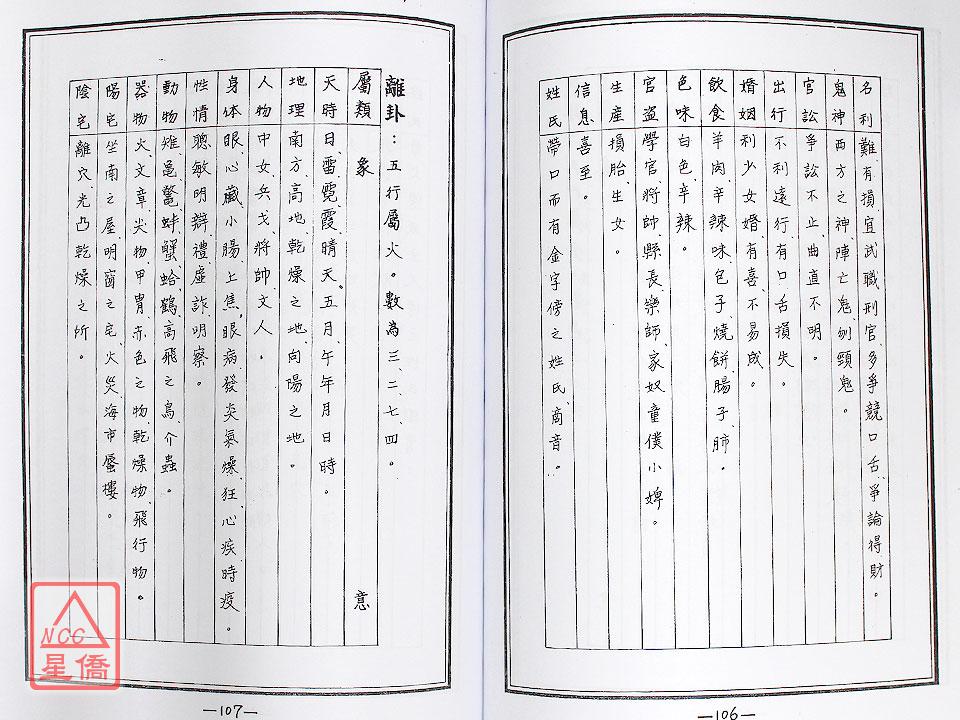 名利難、有損、宜武職刑官、多爭競口舌、爭論得財。
鬼神西方之神陣亡鬼、刎頸鬼。
官訟爭訟不止、曲直不明。
出行不利遠行、有口舌損失。
婚姻利少女婚、有喜、不易成。
飲食羊肉、辛辣味包子、燒餅、腸子、肺。
色味白色、辛辣。
官盜學官、將帥、縣長、樂師、家奴童僕小婢。
生產損胎、生女。
信息喜至。
姓氏帶口而有金字傍之姓氏、商音。
—106—
離卦:五行屬火。數為三、二、七、四。
屬類 象 意
天時日、雷、霓、霞、晴天。五月、午年月日時。
地理南方、高地、乾燥之地、向陽之地。
人物中女、兵戈、將帥、文人。
身体眼、心臟、小腸、上焦。眼病、發炎、氣燥、狂、心疾、時疫。
性情聰敏、明辯、禮、虛詐、明察。
動物雉、龜、鱉、蚌、蟹、蛤、鶴、高飛之鳥、介蟲。
器物火、文章、尖物、甲冑、赤色之物、乾燥物、飛行物。
陽宅坐南之屋、明窗之宅、火災、海市蜃樓。
陰宅離穴、光凸乾燥之所。
—107—
NCC
星僑